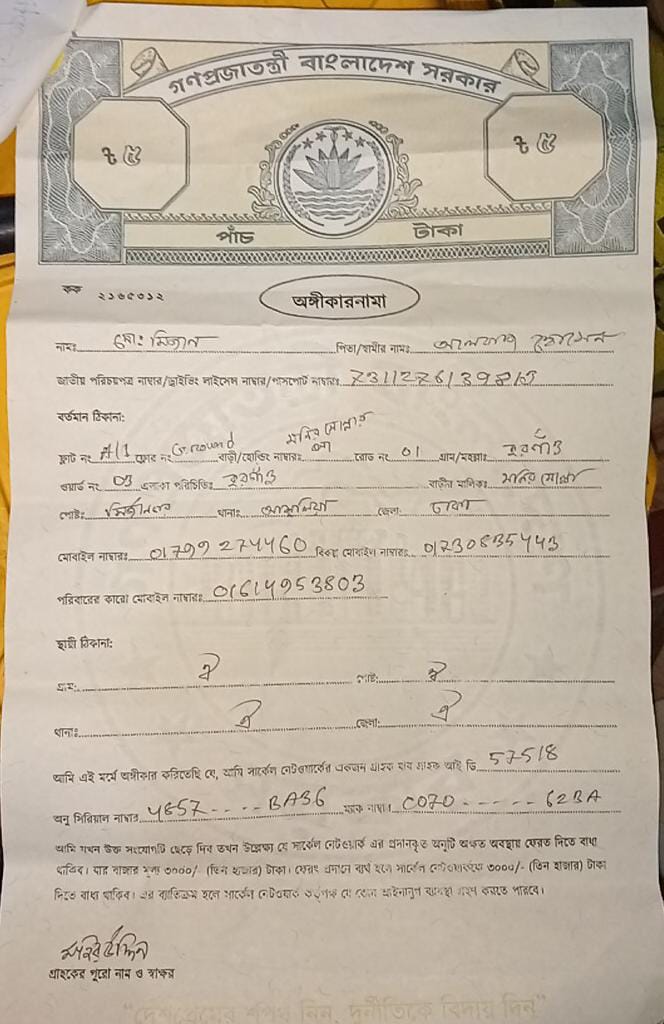 গণপ্রজাতন্ত্রী বাংলাদেশ সরকার
৳ ৫ ৳ ৫
পাঁচ টাকা
কক ২১৬৫৩১২
অঙ্গীকারনামা
নামঃ মোঃ মিজান পিতা/স্বামীর নামঃ আলতাফ হোসেন
জাতীয় পরিচয়পত্র নাম্বার/ড্রাইভিং লাইসেন্স নাম্বার/পাসপোর্ট নাম্বারঃ
বর্তমান ঠিকানা:
ফ্লাট নং A/1 ফ্লোর নং Ground বাড়ী/হোল্ডিং নাম্বারঃ মনির মোল্লার রোড নং 01 গ্রাম/মহল্লাঃ কুরগাঁও
ওয়ার্ড নং 03 এলাকা পরিচিতিঃ কুরগাঁও বাড়ীর মালিকঃ মনির মোল্লা
পোষ্টঃ মির্জানগর থানাঃ আশুলিয়া জেলা: ঢাকা
মোবাইল নাম্বারঃ 01799274460 বিকল্প মোবাইল নাম্বারঃ 01730835443
পরিবারের কারো মোবাইল নাম্বারঃ 01614953803
স্থায়ী ঠিকানা:
গ্রাম: ঐ পোষ্ট: ঐ
থানাঃ ঐ জেলা: ঐ
আমি এই মর্মে অঙ্গীকার করিতেছি যে, আমি সার্কেল নেটওয়ার্কের একজন গ্রাহক যার গ্রাহক আই ডি 57518
অনু সিরিয়াল নাম্বার 4857----BA36 ম্যাক নাম্বার C070------62BA
আমি যখন উক্ত সংযোগটি ছেড়ে দিব তখন উল্লেখ্য যে সার্কেল নেটওয়ার্ক এর প্রদানকৃত অনুটি অক্ষত অবস্থায় ফেরত দিতে বাধ্য
থাকিব। যার বাজার মূল্য ৩০০০/- (তিন হাজার) টাকা। ফেরৎ প্রদানে ব্যর্থ হলে সার্কেল নেটওয়ার্ককে ৩০০০/- (তিন হাজার) টাকা
দিতে বাধ্য থাকিব। এর ব্যতিক্রম হলে সার্কেল নেটওয়ার্ক কর্তৃপক্ষ যে কোন আইনানুগ ব্যবস্থা গ্রহণ করতে পারবে।
গ্রাহকের পুরো নাম ও স্বাক্ষর
"দেশপ্রেমের শপথ নিন, দুর্নীতিকে বিদায় দিন"